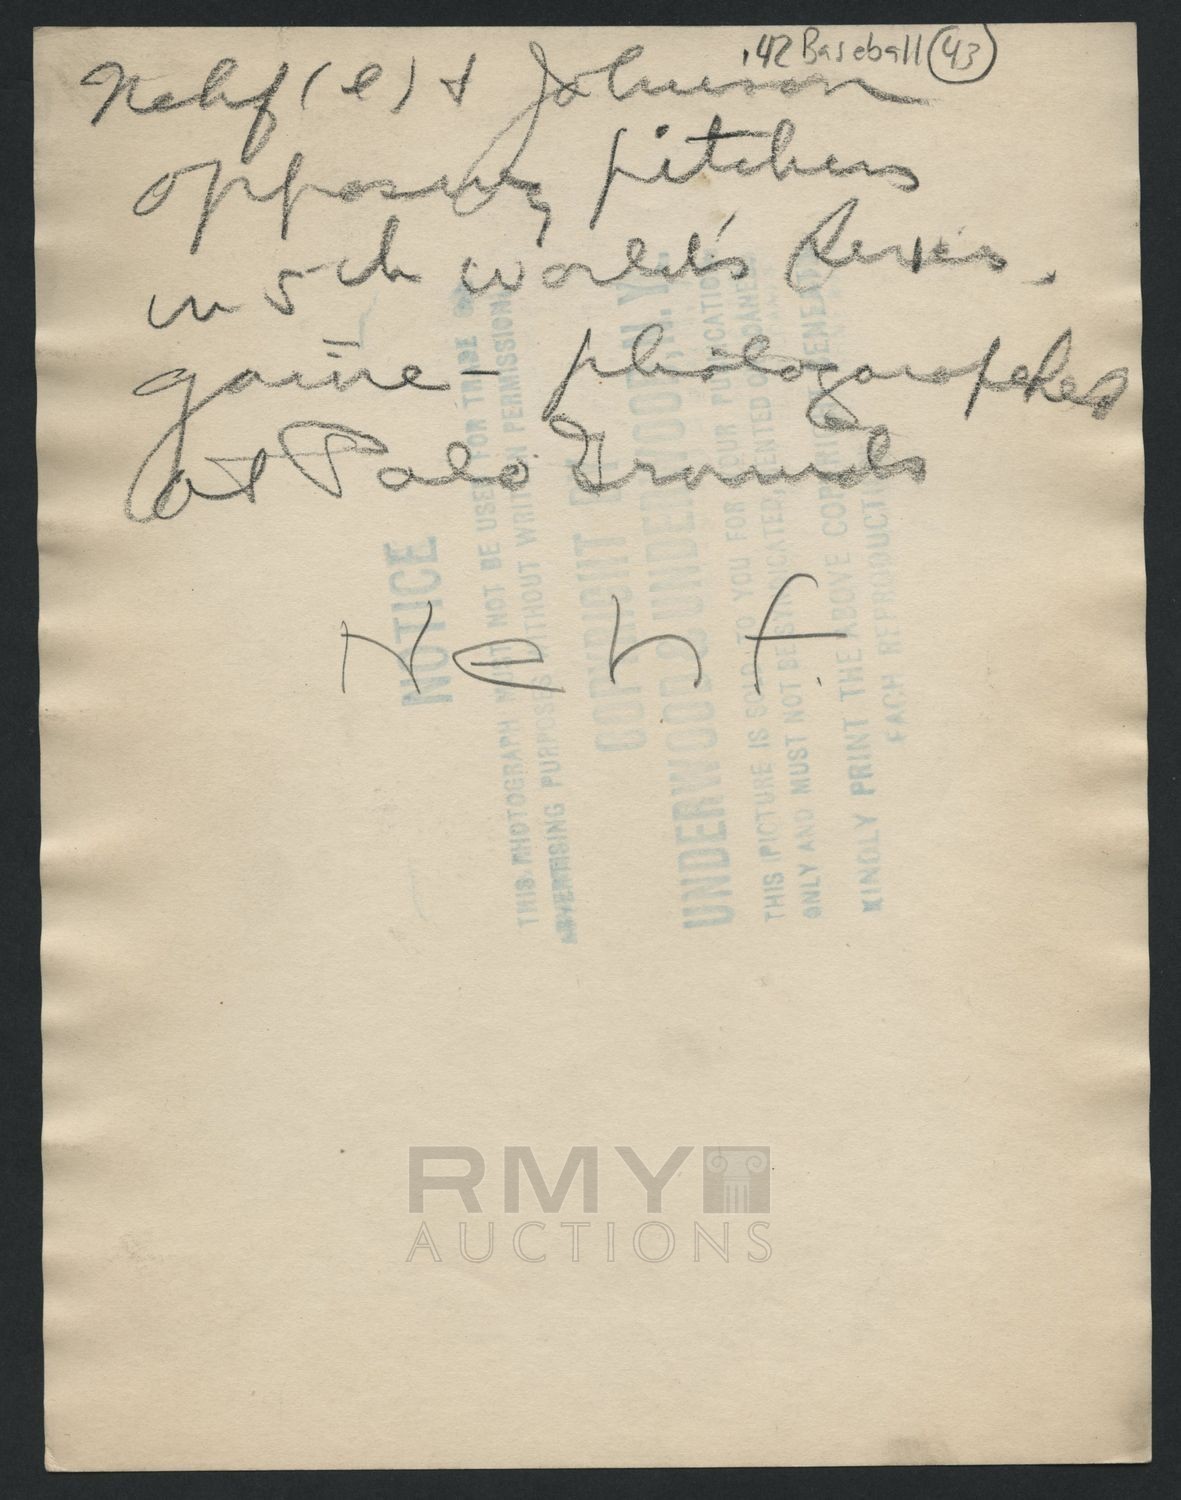 .42 Baseball (43)
Nehf (l) + Johnson
opposing pitchers
in 5th world's Series.
game - photographed
at Polo Grounds
Nehf.
NOTICE
THIS PHOTOGRAPH MUST NOT BE USED FOR TRADE OR
ADVERTISING PURPOSES WITHOUT WRITTEN PERMISSION.
COPYRIGHT BY
UNDERWOOD & UNDERWOOD, N.Y.
THIS PICTURE IS SOLD TO YOU FOR YOUR PUBLICATION
ONLY AND MUST NOT BE SYNDICATED, RENTED OR LOANED
KINDLY PRINT THE ABOVE COPYRIGHT
EACH REPRODUCTION
RMY
AUCTIONS